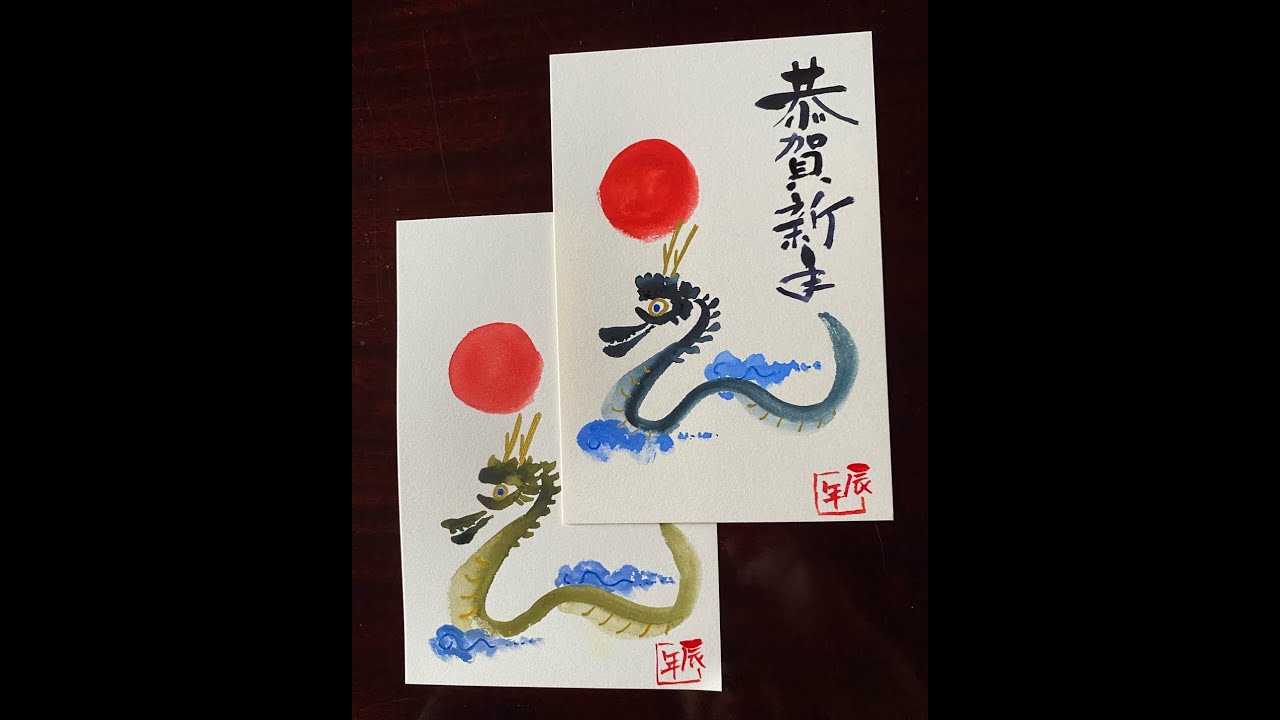 恭賀新年
辰年
辰年